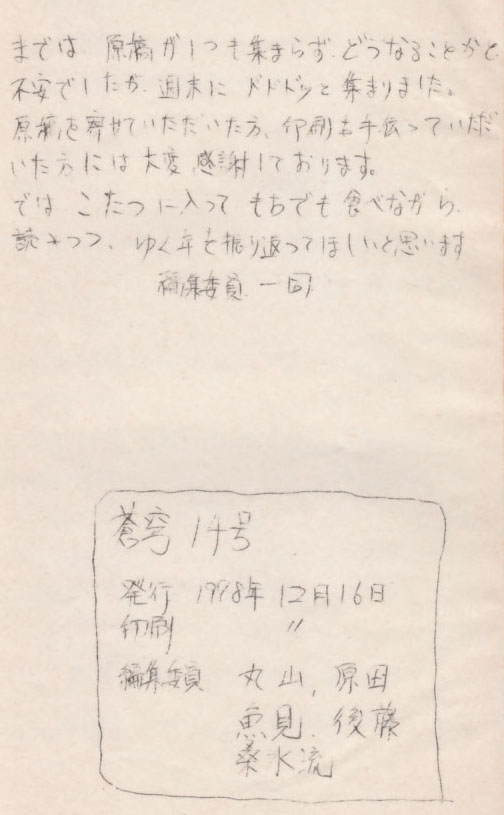 までは 原稿が1つも集まらず、どうなることかと
不安でしたが、週末に ドドドッと 集まりました。
原稿を寄せていただいた方、印刷お手伝っていただ
いた方には 大変 感謝しております。
では こたつに入って もちでも 食べながら、
読みつつ、ゆく年を振り返ってほしいと思います
編集委員 一同
蒼穹 14号
発行 1978年 12月16日
印刷 〃
編集委員 丸山, 原田
魚見、後藤
桑水流